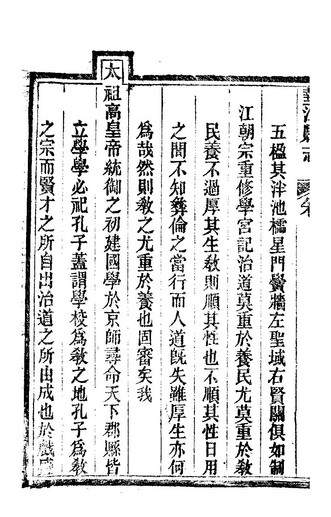 五楹其泮池櫺星門黌牆左聖域右賢關俱如制
江朝宗重修學宮記治道莫重於養民尤莫重於教
民養不過厚其生教則順其性也不順其性日用
之間不知彝倫之當行而人道旣失雖厚生亦何
爲哉然則教之尤重於養也固審矣我
太祖高皇帝統御之初建國學於京師尋命天下郡縣皆
立學學必祀孔子蓋謂學校爲教之地孔子爲教
之宗而賢才之所自出治道之所由成也於戲盛